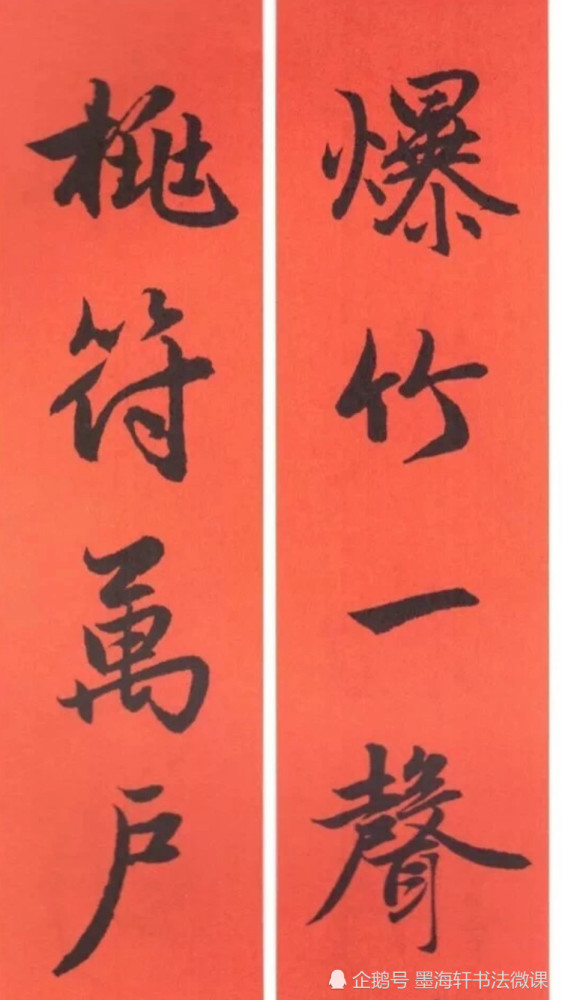 爆竹一聲
桃符萬户
企鹅号 墨海轩书法微课